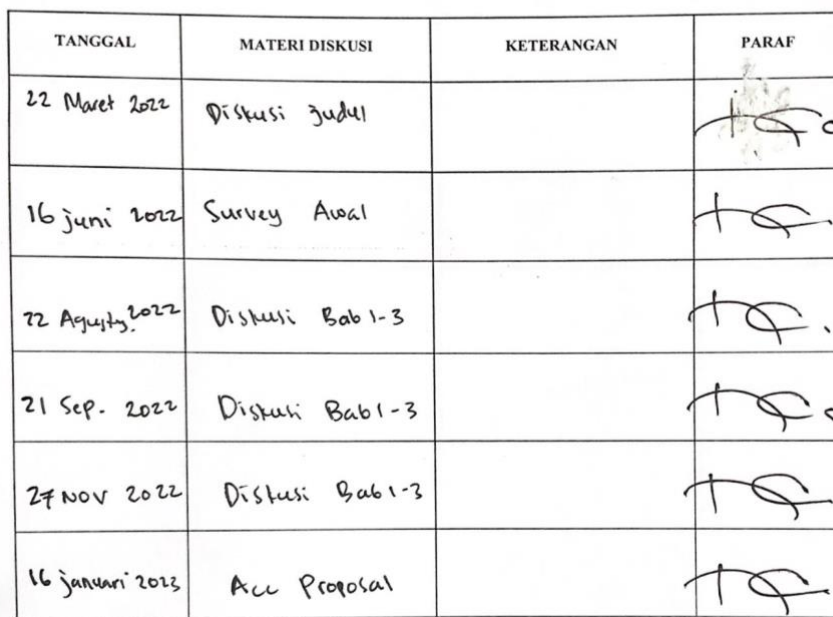 TANGGAL MATERI DISKUSI KETERANGAN PARAF
22 Maret 2022 Diskusi Judul
16 juni 2022 Survey Awal
22 Agusts. 2022 Diskusi Bab 1-3
21 Sep. 2022 Diskusi Bab 1-3
27 NOV 2022 Diskusi Bab 1-3
16 januari 2023 Acc Proposal